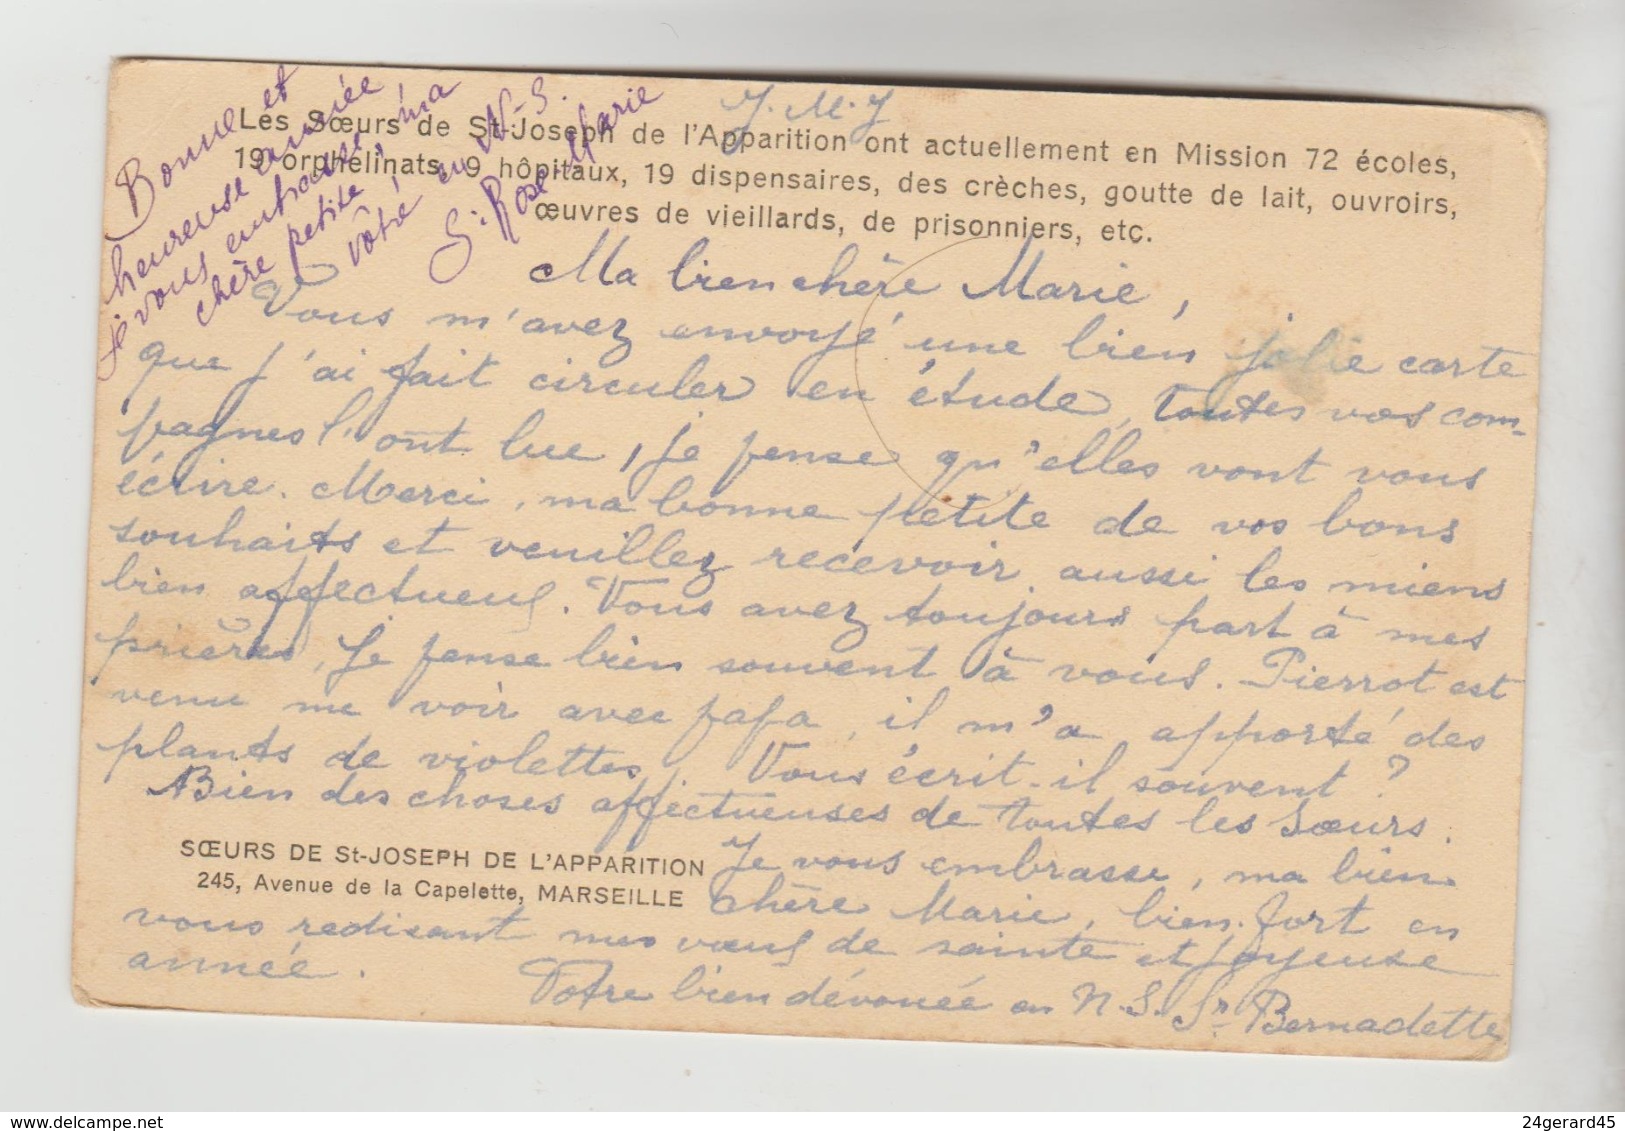 J. M. J
Les Sœurs de St-Joseph de l'Apparition ont actuellement en Mission 72 écoles,
19 orphelinats, 9 hôpitaux, 19 dispensaires, des crèches, goutte de lait, ouvroirs,
œuvres de vieillards, de prisonniers, etc.
Bonne et
heureuse année
je vous embrasse, ma
chère petite,
vôtre en N-S.
S. Rose Marie
Ma bien chère Marie,
Vous m'avez envoyé une bien jolie carte
que j'ai fait circuler en étude, toutes vos com-
pagnes l'ont lue, je pense qu'elles vont vous
écrire. Merci, ma bonne petite de vos bons
souhaits et veuillez recevoir aussi les miens
bien affectueux. Vous avez toujours part à mes
prières, je pense bien souvent à vous. Pierrot est
venu me voir avec papa, il m'a apporté des
plants de violettes. Vous écrit-il souvent ?
Bien des choses affectueuses de toutes les Sœurs.
Je vous embrasse, ma bien
SŒURS DE St-JOSEPH DE L'APPARITION
245, Avenue de la Capelette, MARSEILLE
chère Marie, bien fort en
vous redisant mes vœux de sainte et joyeuse
année.
Votre bien dévouée en N. S. Sr Bernadette
delcampe.net
24gerard45